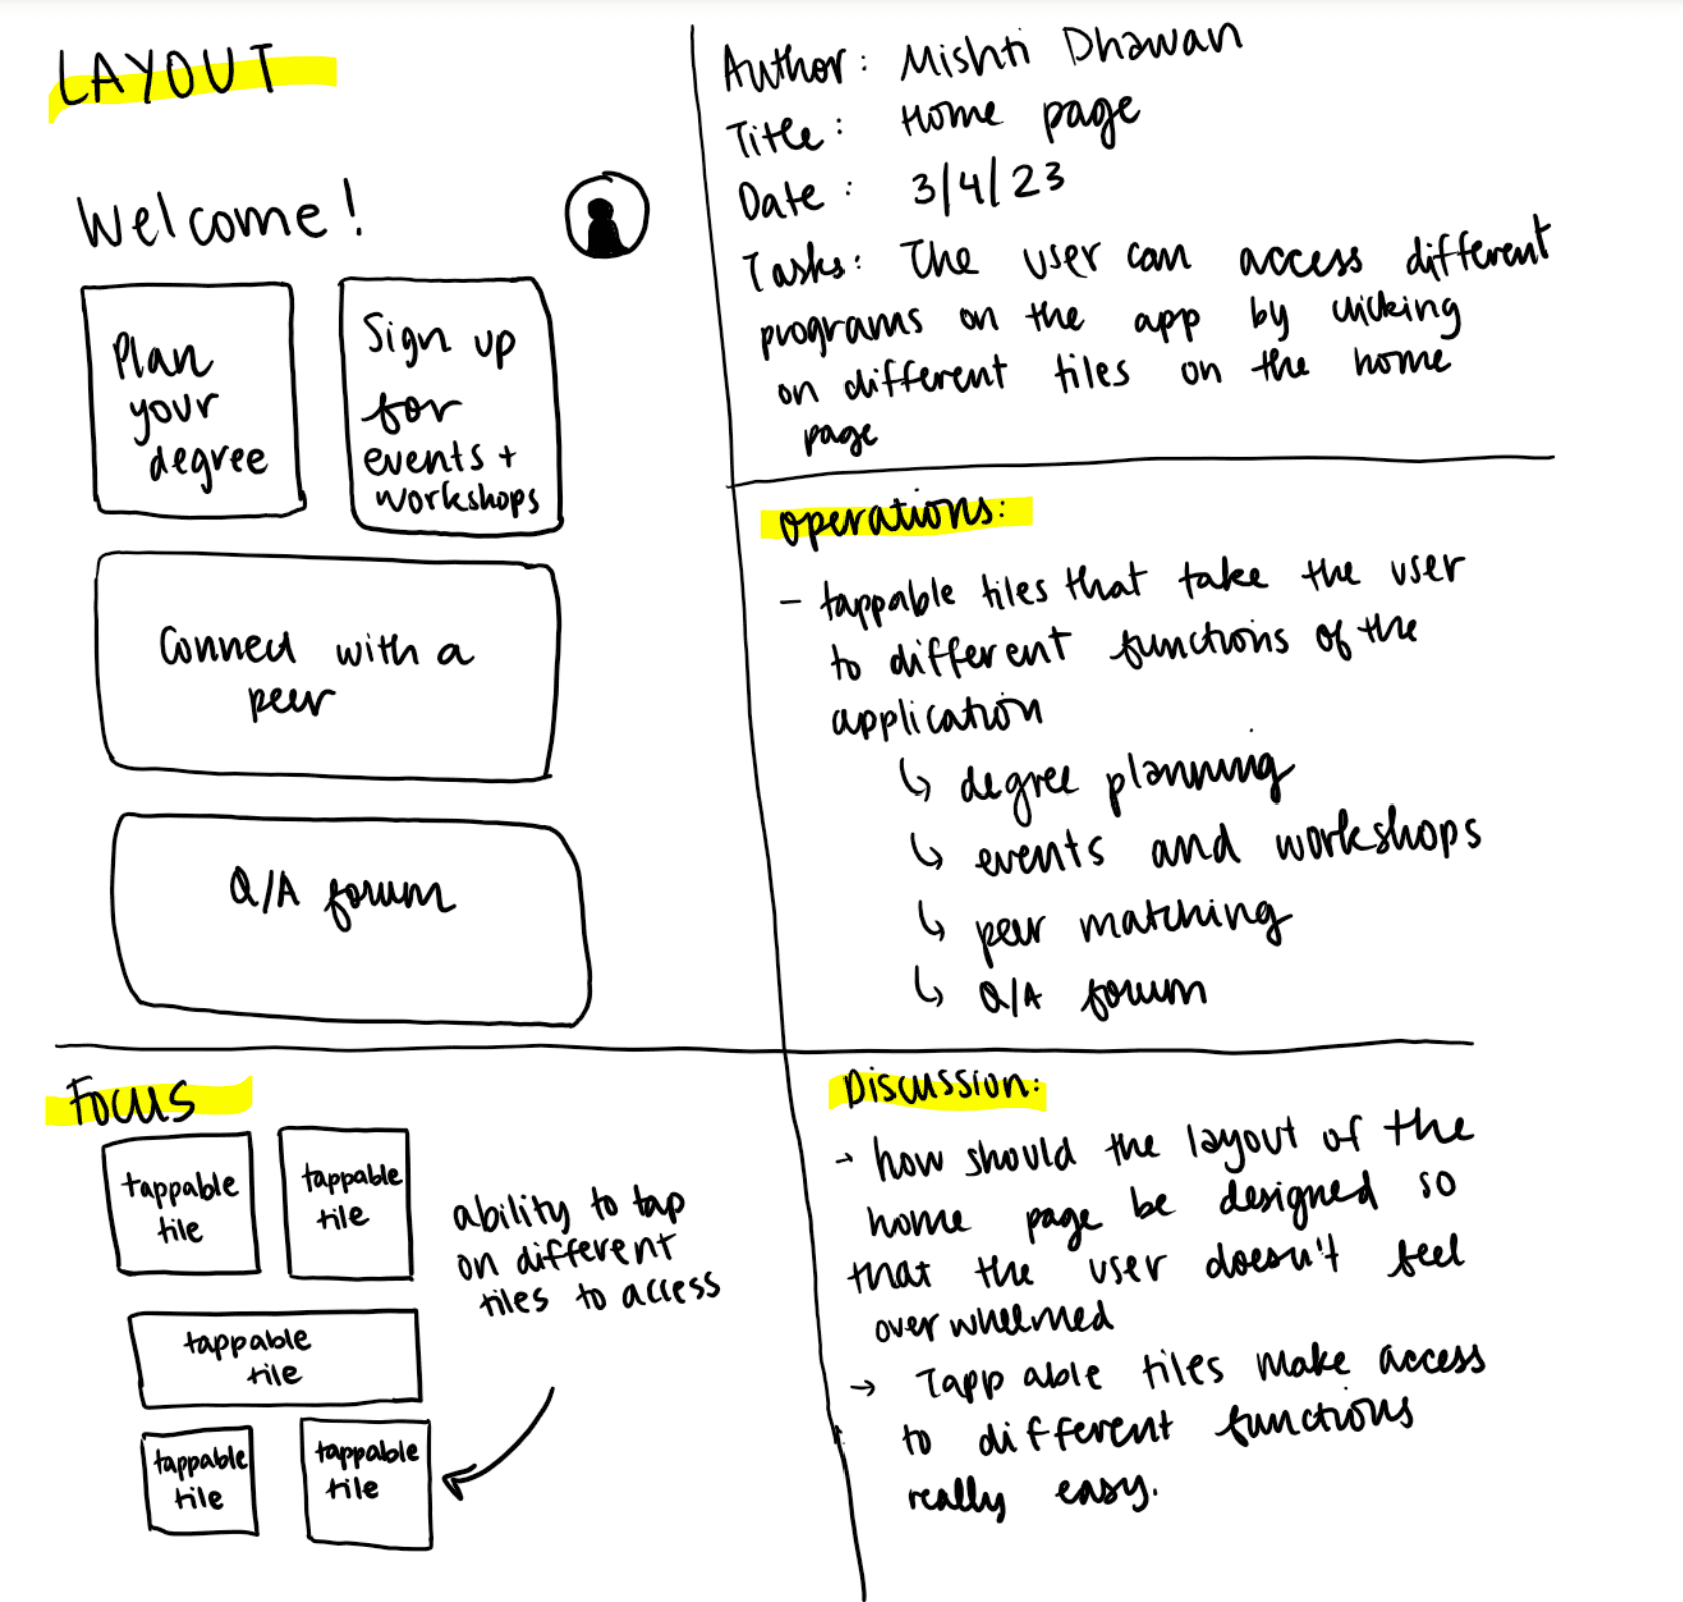 LAYOUT
Welcome!
Plan
your
degree
Sign up
for
events +
workshops
Connect with a
peer
Q/A forum
Author: Mishti Dhawan
Title: Home page
Date: 3/4/23
Tasks: The user can access different
programs on the app by clicking
on different tiles on the home
page
Operations:
- tappable tiles that take the user
to different functions of the
application
↳ degree planning
↳ events and workshops
↳ peer matching
↳ Q/A forum
FOCUS
tappable
tile
tappable
tile
tappable
tile
tappable
tile
tappable
tile
ability to tap
on different
tiles to access
Discussion:
→ how should the layout of the
home page be designed so
that the user doesn't feel
overwhelmed
→ Tappable tiles make access
to different functions
really easy.